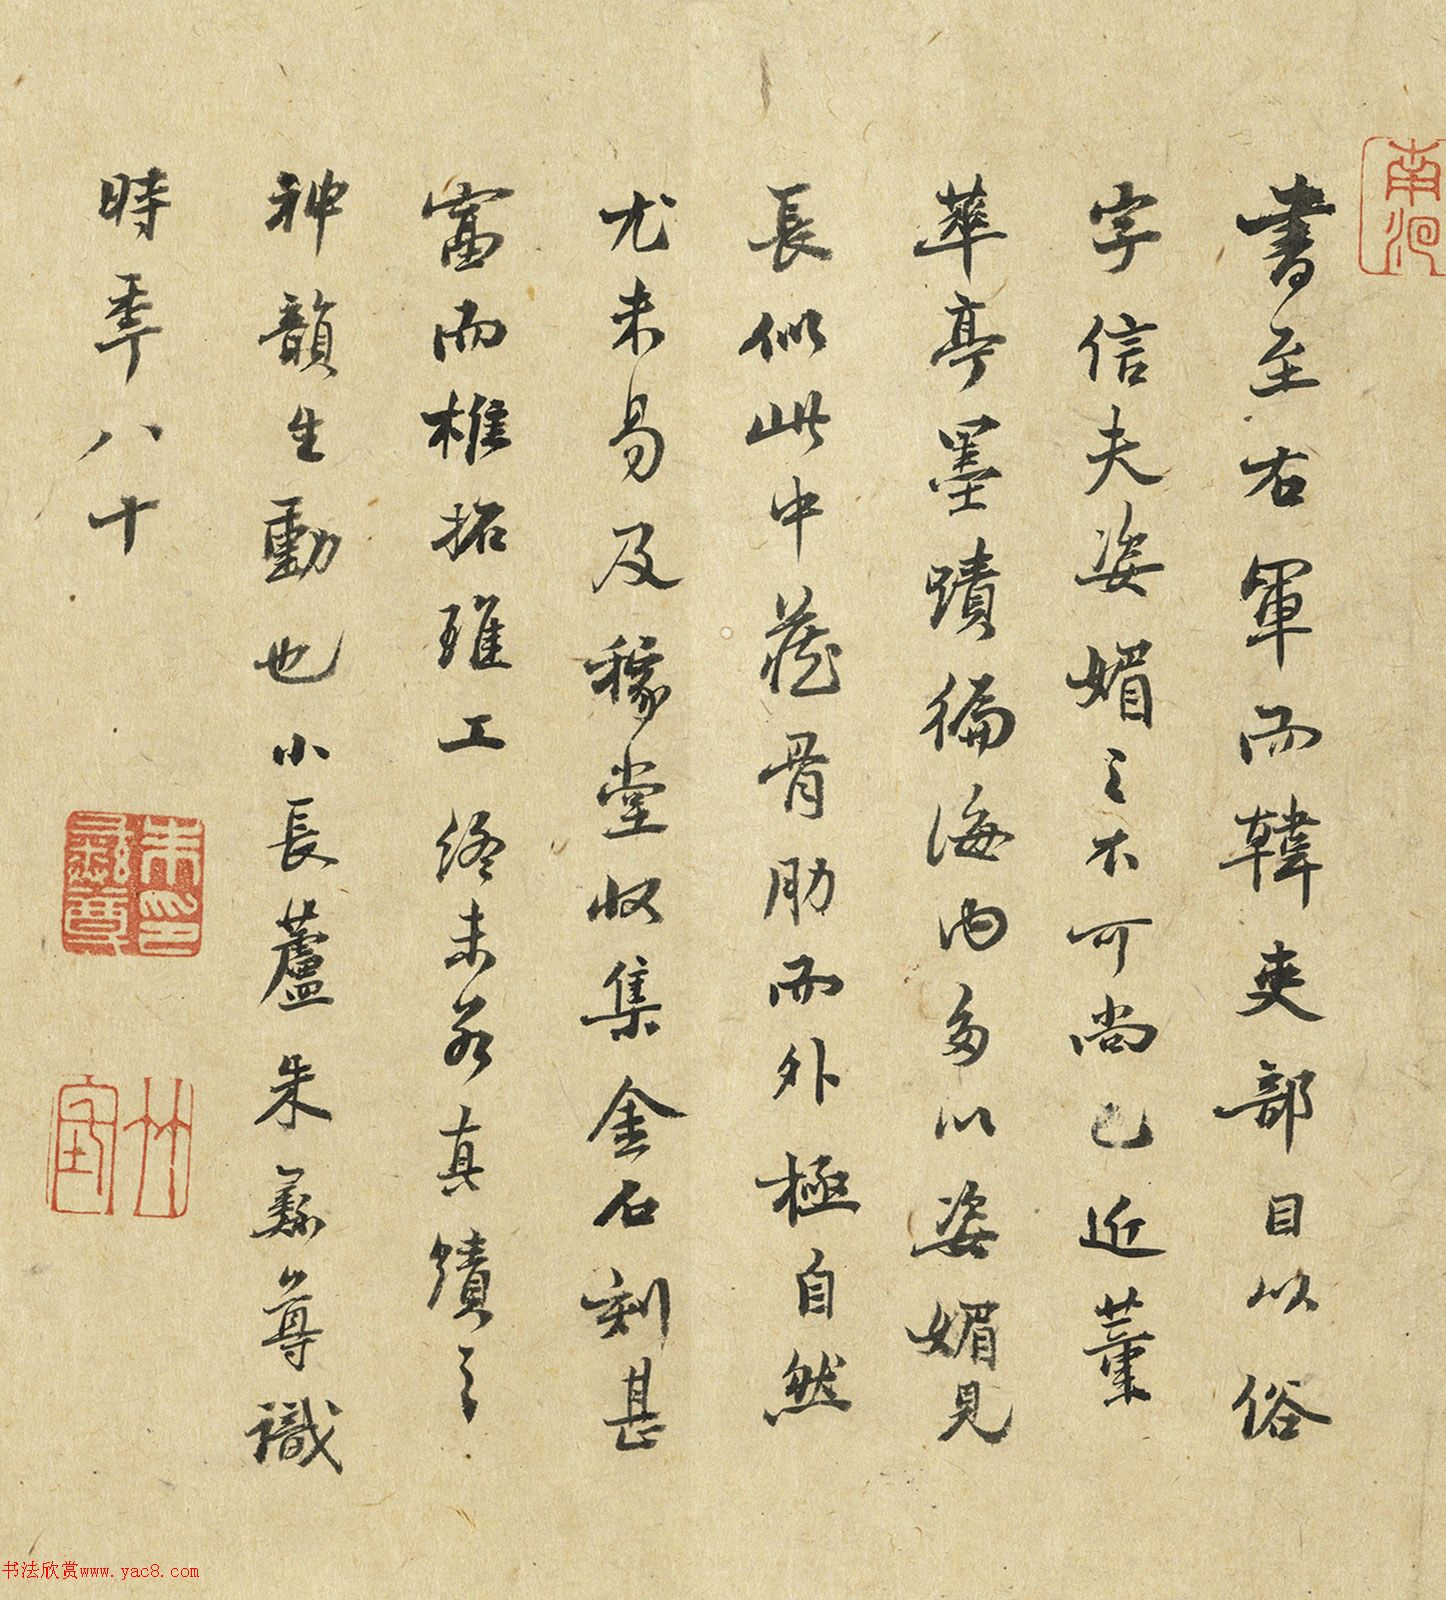 書至右軍而韓吏部目以俗
字信夫姿媚之不可尚已近董
華亭墨蹟徧海內多以姿媚見
長似此中藏骨肋而外極自然
尤未易及穆堂收集金石刻甚
富而椎拓雖工終未若真蹟之
神韻生動也小長蘆朱彝尊識
時年八十
朱印彝尊
竹垞
书法欣赏www.yac8.com